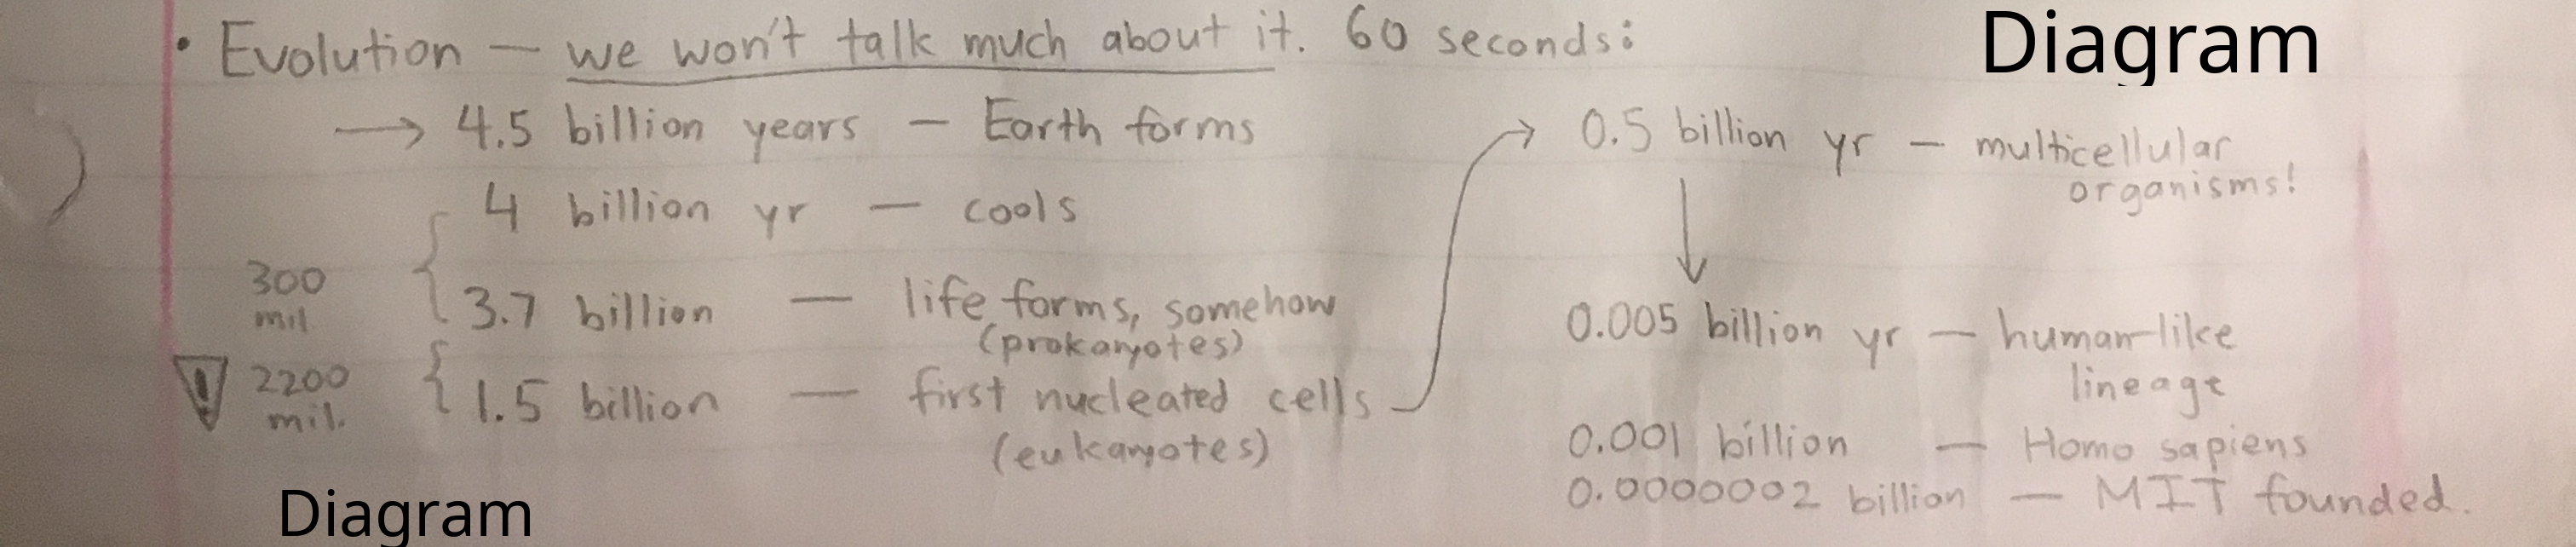 • Evolution — we won't talk much about it. 60 seconds:
Diagram
→ 4.5 billion years — Earth forms
4 billion yr — cools
300
mil
3.7 billion — life forms, somehow
(prokaryotes)
! 2200
mil.
1.5 billion — first nucleated cells
(eukaryotes)
→ 0.5 billion yr — multicellular
organisms!
0.005 billion yr — human-like
lineage
0.001 billion — Homo sapiens
0.0000002 billion — MIT founded.
Diagram